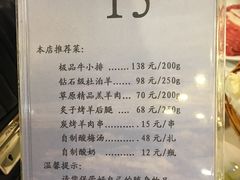 15
本店推荐菜:
极品牛小排 ......138 元/200g
钻石级杜泊羊 ......98 元/250g
草原精品羔羊肉 ....70 元/200g
炙子烤羊后腿 ......68 元/250g
炭烤羊肉串 ........15 元/串
自制酸梅汤 ........48 元/扎
自制酸奶 ..........12 元/瓶
温馨提示: